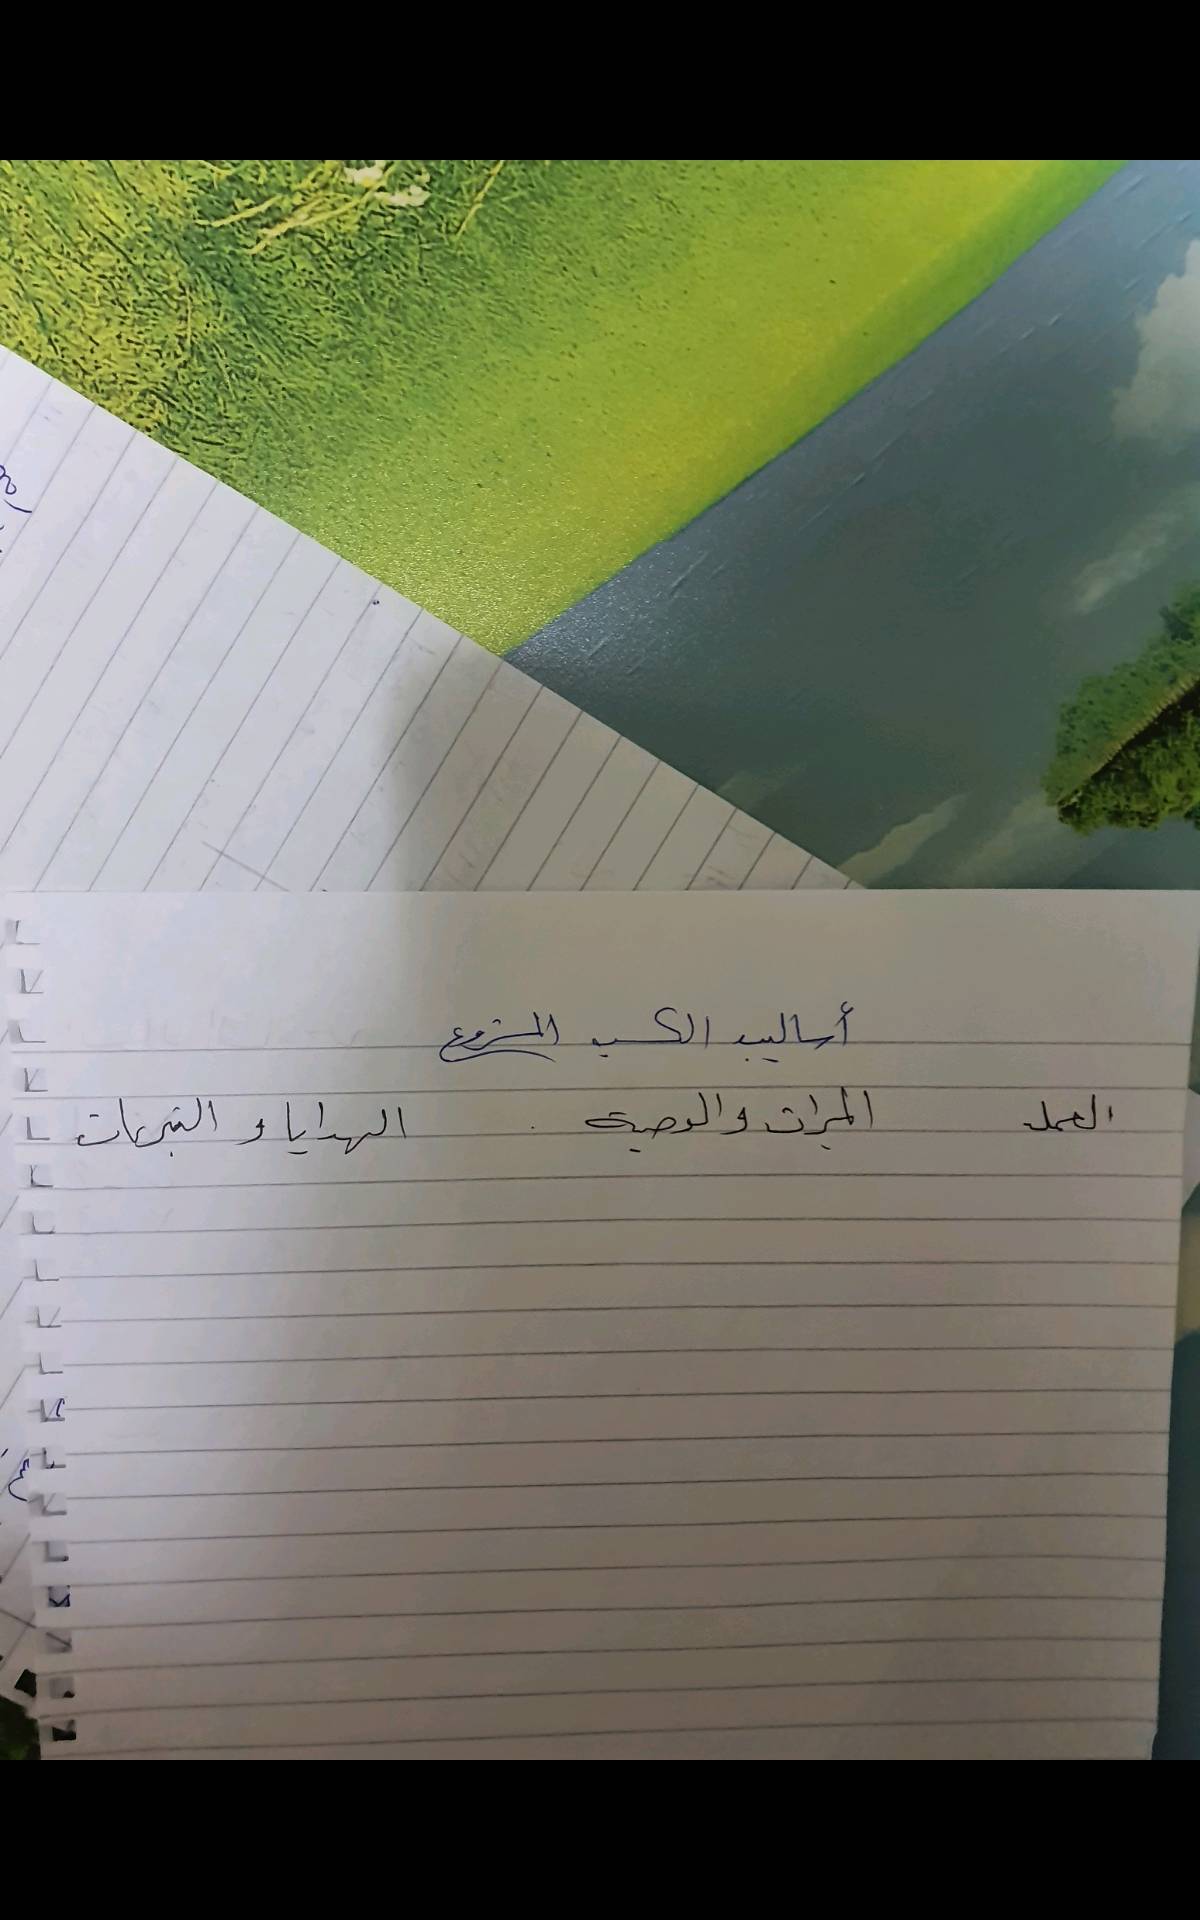 أساليب الكسب المشروع
العمل المیراث والوصية الهدايا و التبرعات